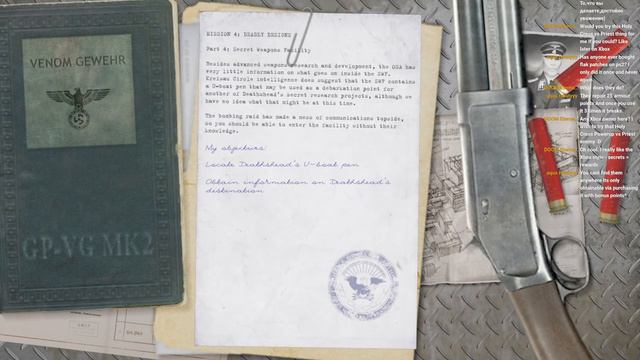 VENOM GEWEHR
GP-VG MK2
MISSION 4: DEADLY DESIGNS
Part 4: Secret Weapons Facility
Besides advanced weapons research and development, the OSA has
very little information on what goes on inside the SWF.
Kreisau Circle intelligence does suggest that the SWF contains
a U-boat pen that may be used as a debarkation point for
another of Deathshead's secret research projects, although we
have no idea what that might be at this time.
The bombing raid has made a mess of communications topside,
so you should be able to enter the facility without their
knowledge.
My objectives:
Locate Deathshead's U-boat pen
Obtain information on Deathshead's
destination
Would you try this Holy
Cross vs Priest thing for
me if you could? Like
later on Xbox
Has anyone ever bought
flak patches on ps2? I
only did it once and never
What does they do?
They repair 21 armour
points. And once you use
it 3 times it breaks.
Any Xbox owner here? I
wish to try that Holy
Cross Powerup vs Priest
enemy :D
Oh cool. I really like the
Xbox style - secrets =
rewards
You cant find them
anywhere its only
obtainable via purchasing
it with bonus points*